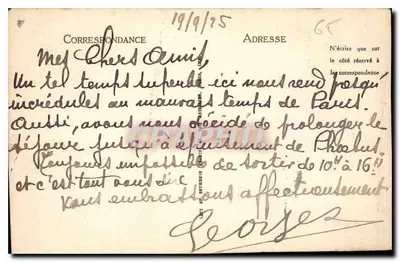 19/9/25
65
CORRESPONDANCE
ADRESSE
N'écrire que sur
le côté réservé à
la correspondance
Mes Chers Amis,
Un tel temps superbe ici nous rend presqu'
incrédules au mauvais temps de Paris.
Aussi, avons nous décidé de prolonger le
séjour jusqu'à épuisement de Phoebus.
Toujours impossible de sortir de 10H à 16H
et c'est tout vous dire
Vous embrassons affectueusement
Georges